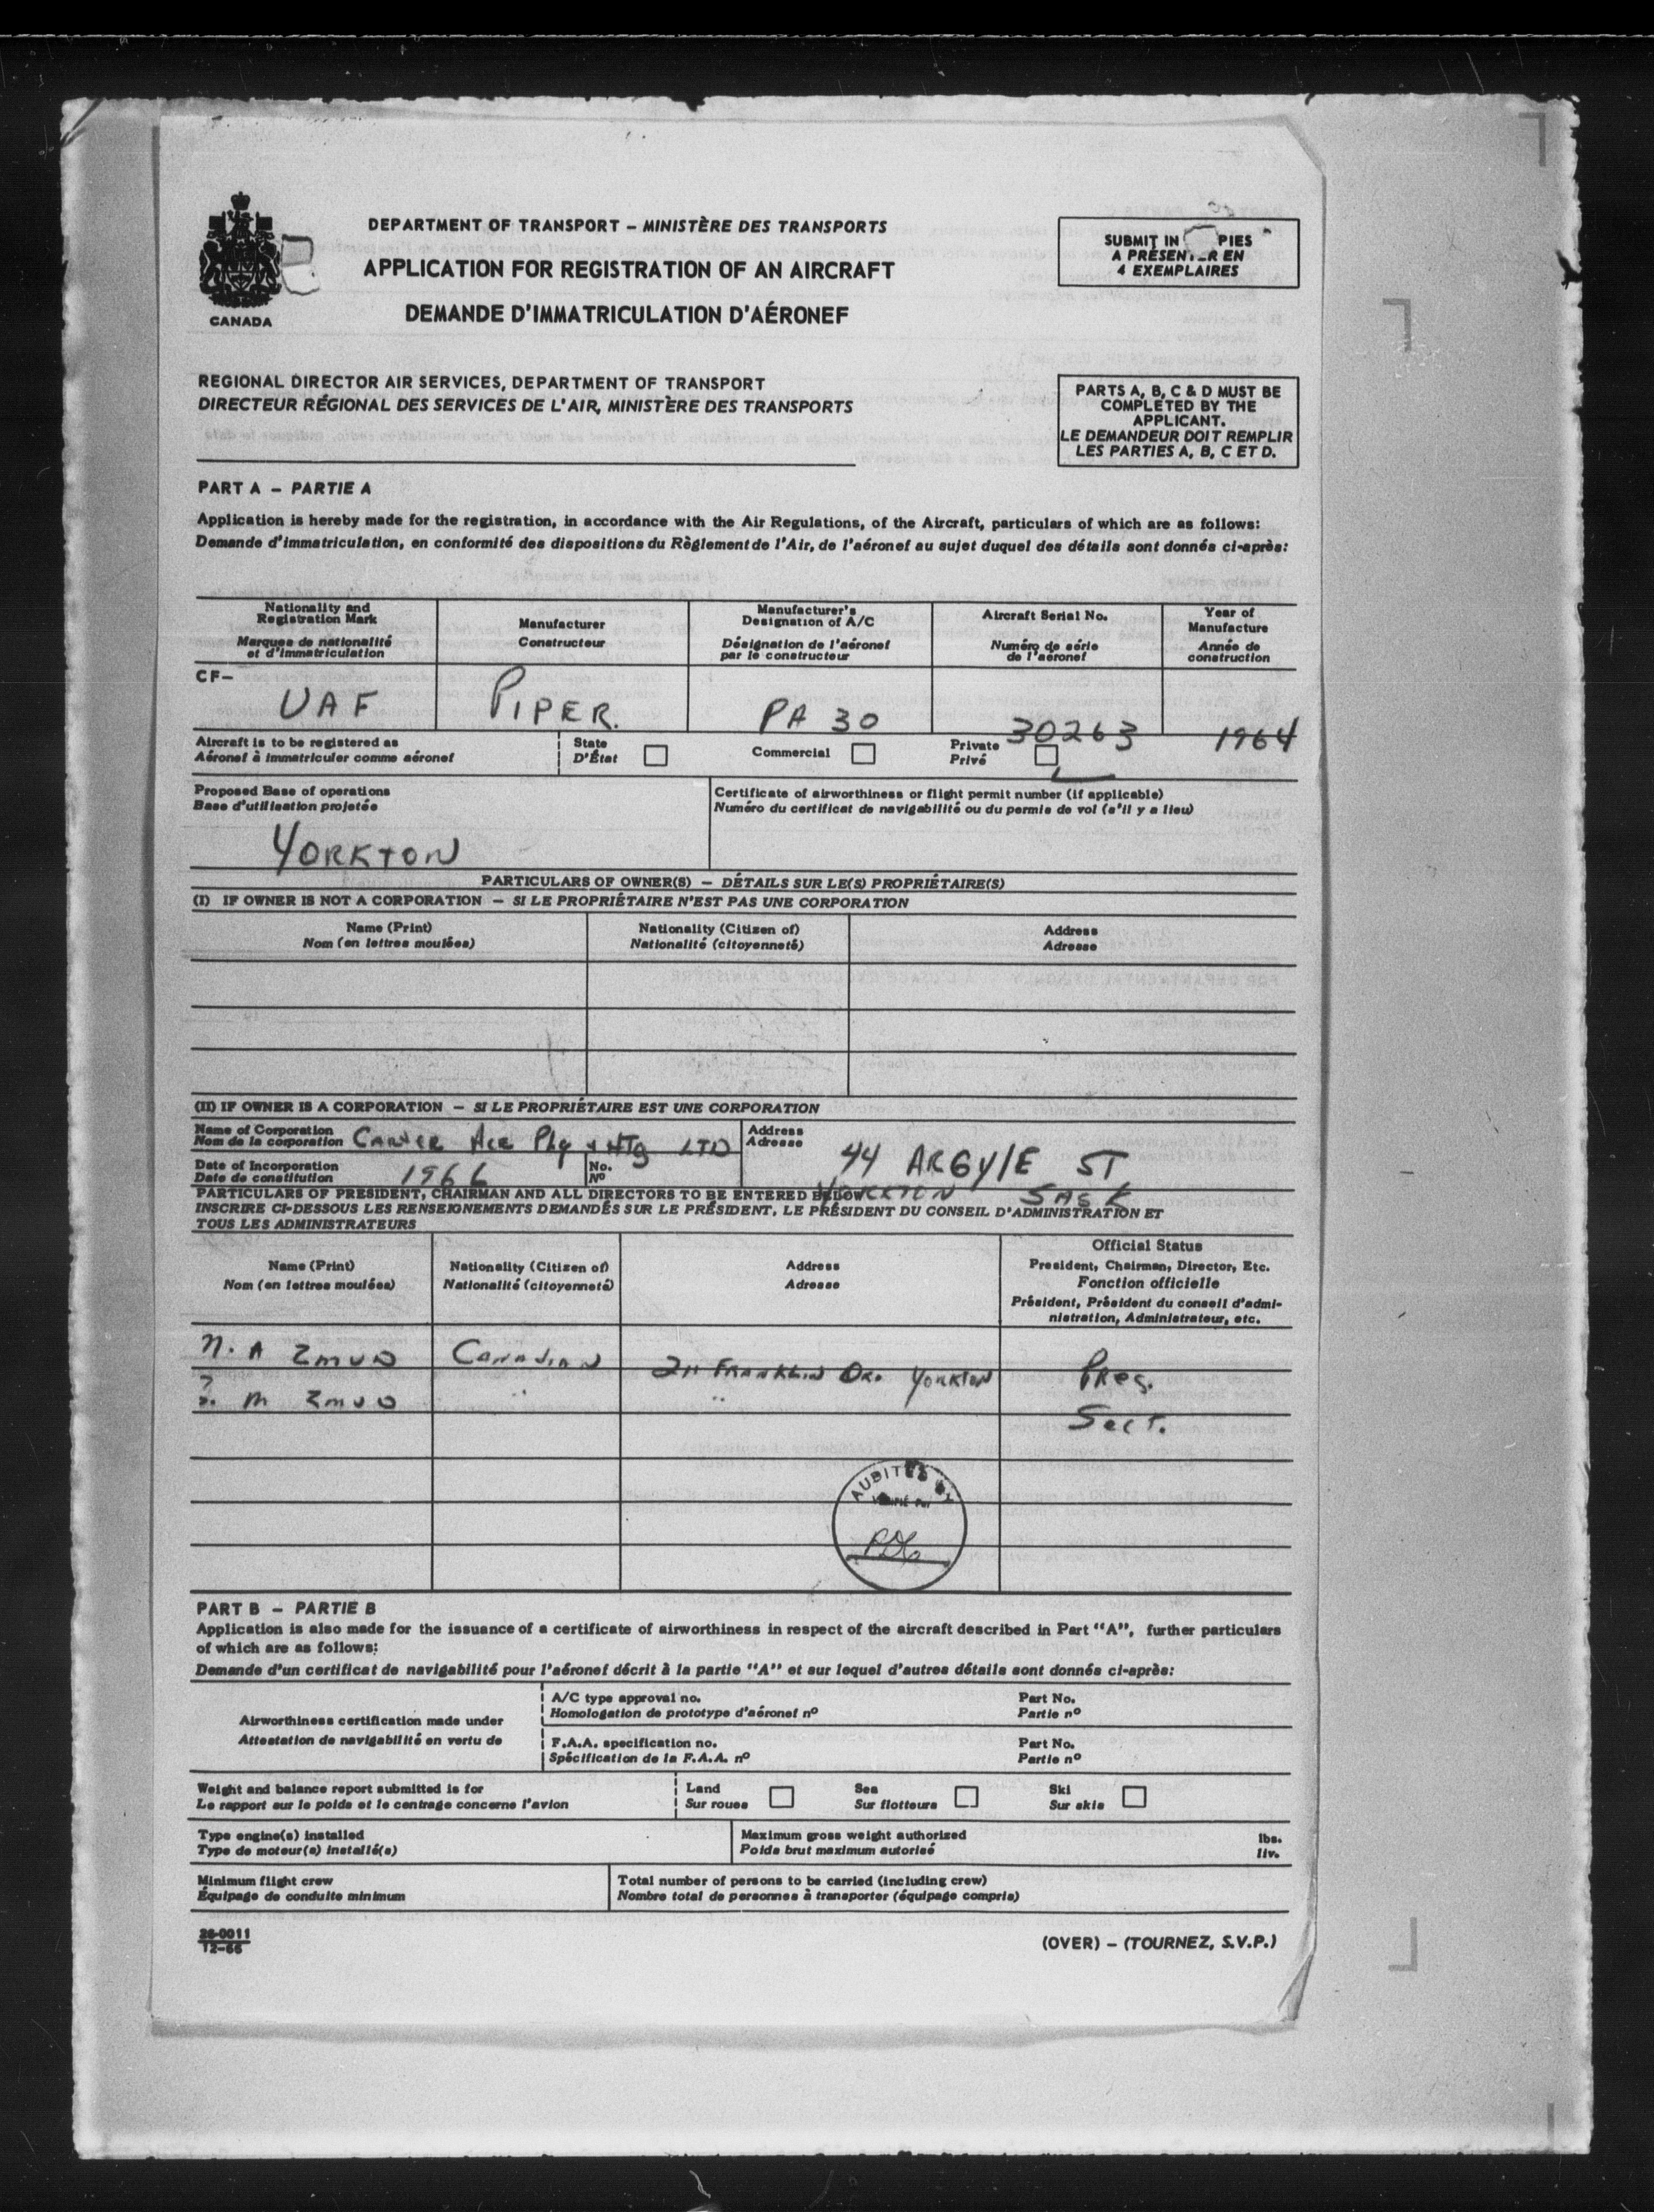 DEPARTMENT OF TRANSPORT – MINISTÈRE DES TRANSPORTS
APPLICATION FOR REGISTRATION OF AN AIRCRAFT
DEMANDE D'IMMATRICULATION D'AÉRONEF
CANADA
SUBMIT IN PIES
A PRÉSENTER EN
4 EXEMPLAIRES
REGIONAL DIRECTOR AIR SERVICES, DEPARTMENT OF TRANSPORT
DIRECTEUR RÉGIONAL DES SERVICES DE L'AIR, MINISTÈRE DES TRANSPORTS
PARTS A, B, C & D MUST BE
COMPLETED BY THE
APPLICANT.
LE DEMANDEUR DOIT REMPLIR
LES PARTIES A, B, C ET D.
PART A – PARTIE A
Application is hereby made for the registration, in accordance with the Air Regulations, of the Aircraft, particulars of which are as follows:
Demande d'immatriculation, en conformité des dispositions du Règlement de l'Air, de l'aéronef au sujet duquel des détails sont donnés ci-après:
Nationality and
Registration Mark
Marques de nationalité
et d'immatriculation
Manufacturer
Constructeur
Manufacturer's
Designation of A/C
Désignation de l'aéronef
par le constructeur
Aircraft Serial No.
Numéro de série
de l'aéronef
Year of
Manufacture
Année de
construction
CF–
UAF PIPER. PA 30 30263 1964
Aircraft is to be registered as
Aéronef à immatriculer comme aéronef
State
D'État
Commercial
Private
Privé
Proposed Base of operations
Base d'utilisation projetée
YORKTON
Certificate of airworthiness or flight permit number (if applicable)
Numéro du certificat de navigabilité ou du permis de vol (s'il y a lieu)
PARTICULARS OF OWNER(S) – DÉTAILS SUR LE(S) PROPRIÉTAIRE(S)
(I) IF OWNER IS NOT A CORPORATION – SI LE PROPRIÉTAIRE N'EST PAS UNE CORPORATION
Name (Print)
Nom (en lettres moulées)
Nationality (Citizen of)
Nationalité (citoyenneté)
Address
Adresse
(II) IF OWNER IS A CORPORATION – SI LE PROPRIÉTAIRE EST UNE CORPORATION
Name of Corporation
Nom de la corporation
Plg & HTg LTD
Address
Adresse
44 ARGYlE ST
YORKTON SASK
Date of Incorporation
Date de constitution
1966
No.
Nº
PARTICULARS OF PRESIDENT, CHAIRMAN AND ALL DIRECTORS TO BE ENTERED BELOW
INSCRIRE CI-DESSOUS LES RENSEIGNEMENTS DEMANDÉS SUR LE PRÉSIDENT, LE PRÉSIDENT DU CONSEIL D'ADMINISTRATION ET
TOUS LES ADMINISTRATEURS
Name (Print)
Nom (en lettres moulées)
Nationality (Citizen of)
Nationalité (citoyenneté)
Address
Adresse
Official Status
President, Chairman, Director, Etc.
Fonction officielle
Président, Président du conseil d'admi-
nistration, Administrateur, etc.
N. A ZMUD CANADIAN 211 FRANKLIN DR. YORKTON PRes.
M ZMUD " " Sect.
AUDITED BY
PART B – PARTIE B
Application is also made for the issuance of a certificate of airworthiness in respect of the aircraft described in Part "A", further particulars
of which are as follows:
Demande d'un certificat de navigabilité pour l'aéronef décrit à la partie "A" et sur lequel d'autres détails sont donnés ci-après:
Airworthiness certification made under
Attestation de navigabilité en vertu de
A/C type approval no.
Homologation de prototype d'aéronef nº
Part No.
Partie nº
F.A.A. specification no.
Spécification de la F.A.A. nº
Part No.
Partie nº
Weight and balance report submitted is for
Le rapport sur le poids et le centrage concerne l'avion
Land
Sur roues
Sea
Sur flotteurs
Ski
Sur skis
Type engine(s) installed
Type de moteur(s) installé(s)
Maximum gross weight authorized
Poids brut maximum autorisé
lbs.
liv.
Minimum flight crew
Équipage de conduite minimum
Total number of persons to be carried (including crew)
Nombre total de personnes à transporter (équipage compris)
26-0011
12-66
(OVER) – (TOURNEZ, S.V.P.)